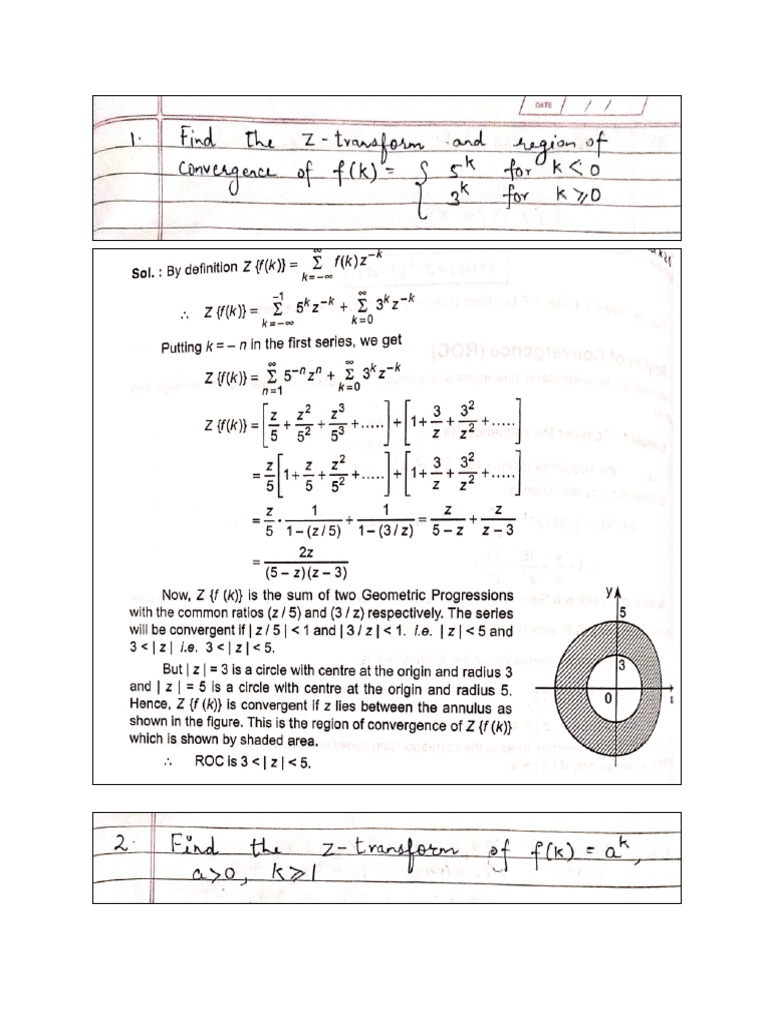 DATE / /
1. Find the Z-transform and region of
convergence of f(k) = { 5^k for k < 0
3^k for k ⩾ 0
Sol. : By definition Z {f(k)} = Σ_{k=–∞}^{∞} f(k) z^{–k}
∴ Z {f(k)} = Σ_{k=–∞}^{–1} 5^k z^{–k} + Σ_{k=0}^{∞} 3^k z^{–k}
Putting k = – n in the first series, we get
Z {f(k)} = Σ_{n=1}^{∞} 5^{–n} z^n + Σ_{k=0}^{∞} 3^k z^{–k}
Z {f(k)} = [z/5 + z^2/5^2 + z^3/5^3 + .....] + [1 + 3/z + 3^2/z^2 + .....]
= z/5 [1 + z/5 + z^2/5^2 + .....] + [1 + 3/z + 3^2/z^2 + .....]
= z/5 · 1/(1–(z/5)) + 1/(1–(3/z)) = z/(5–z) + z/(z–3)
= 2z/((5–z)(z–3))
Now, Z {f (k)} is the sum of two Geometric Progressions
with the common ratios (z / 5) and (3 / z) respectively. The series
will be convergent if | z / 5 | < 1 and | 3 / z | < 1. i.e. | z | < 5 and
3 < | z | i.e. 3 < | z | < 5.
But | z | = 3 is a circle with centre at the origin and radius 3
and | z | = 5 is a circle with centre at the origin and radius 5.
Hence, Z {f (k)} is convergent if z lies between the annulus as
shown in the figure. This is the region of convergence of Z {f (k)}
which is shown by shaded area.
∴ ROC is 3 < | z | < 5.
y
5
3
0
2. Find the z-transform of f(k) = a^k,
a>0, k⩾1